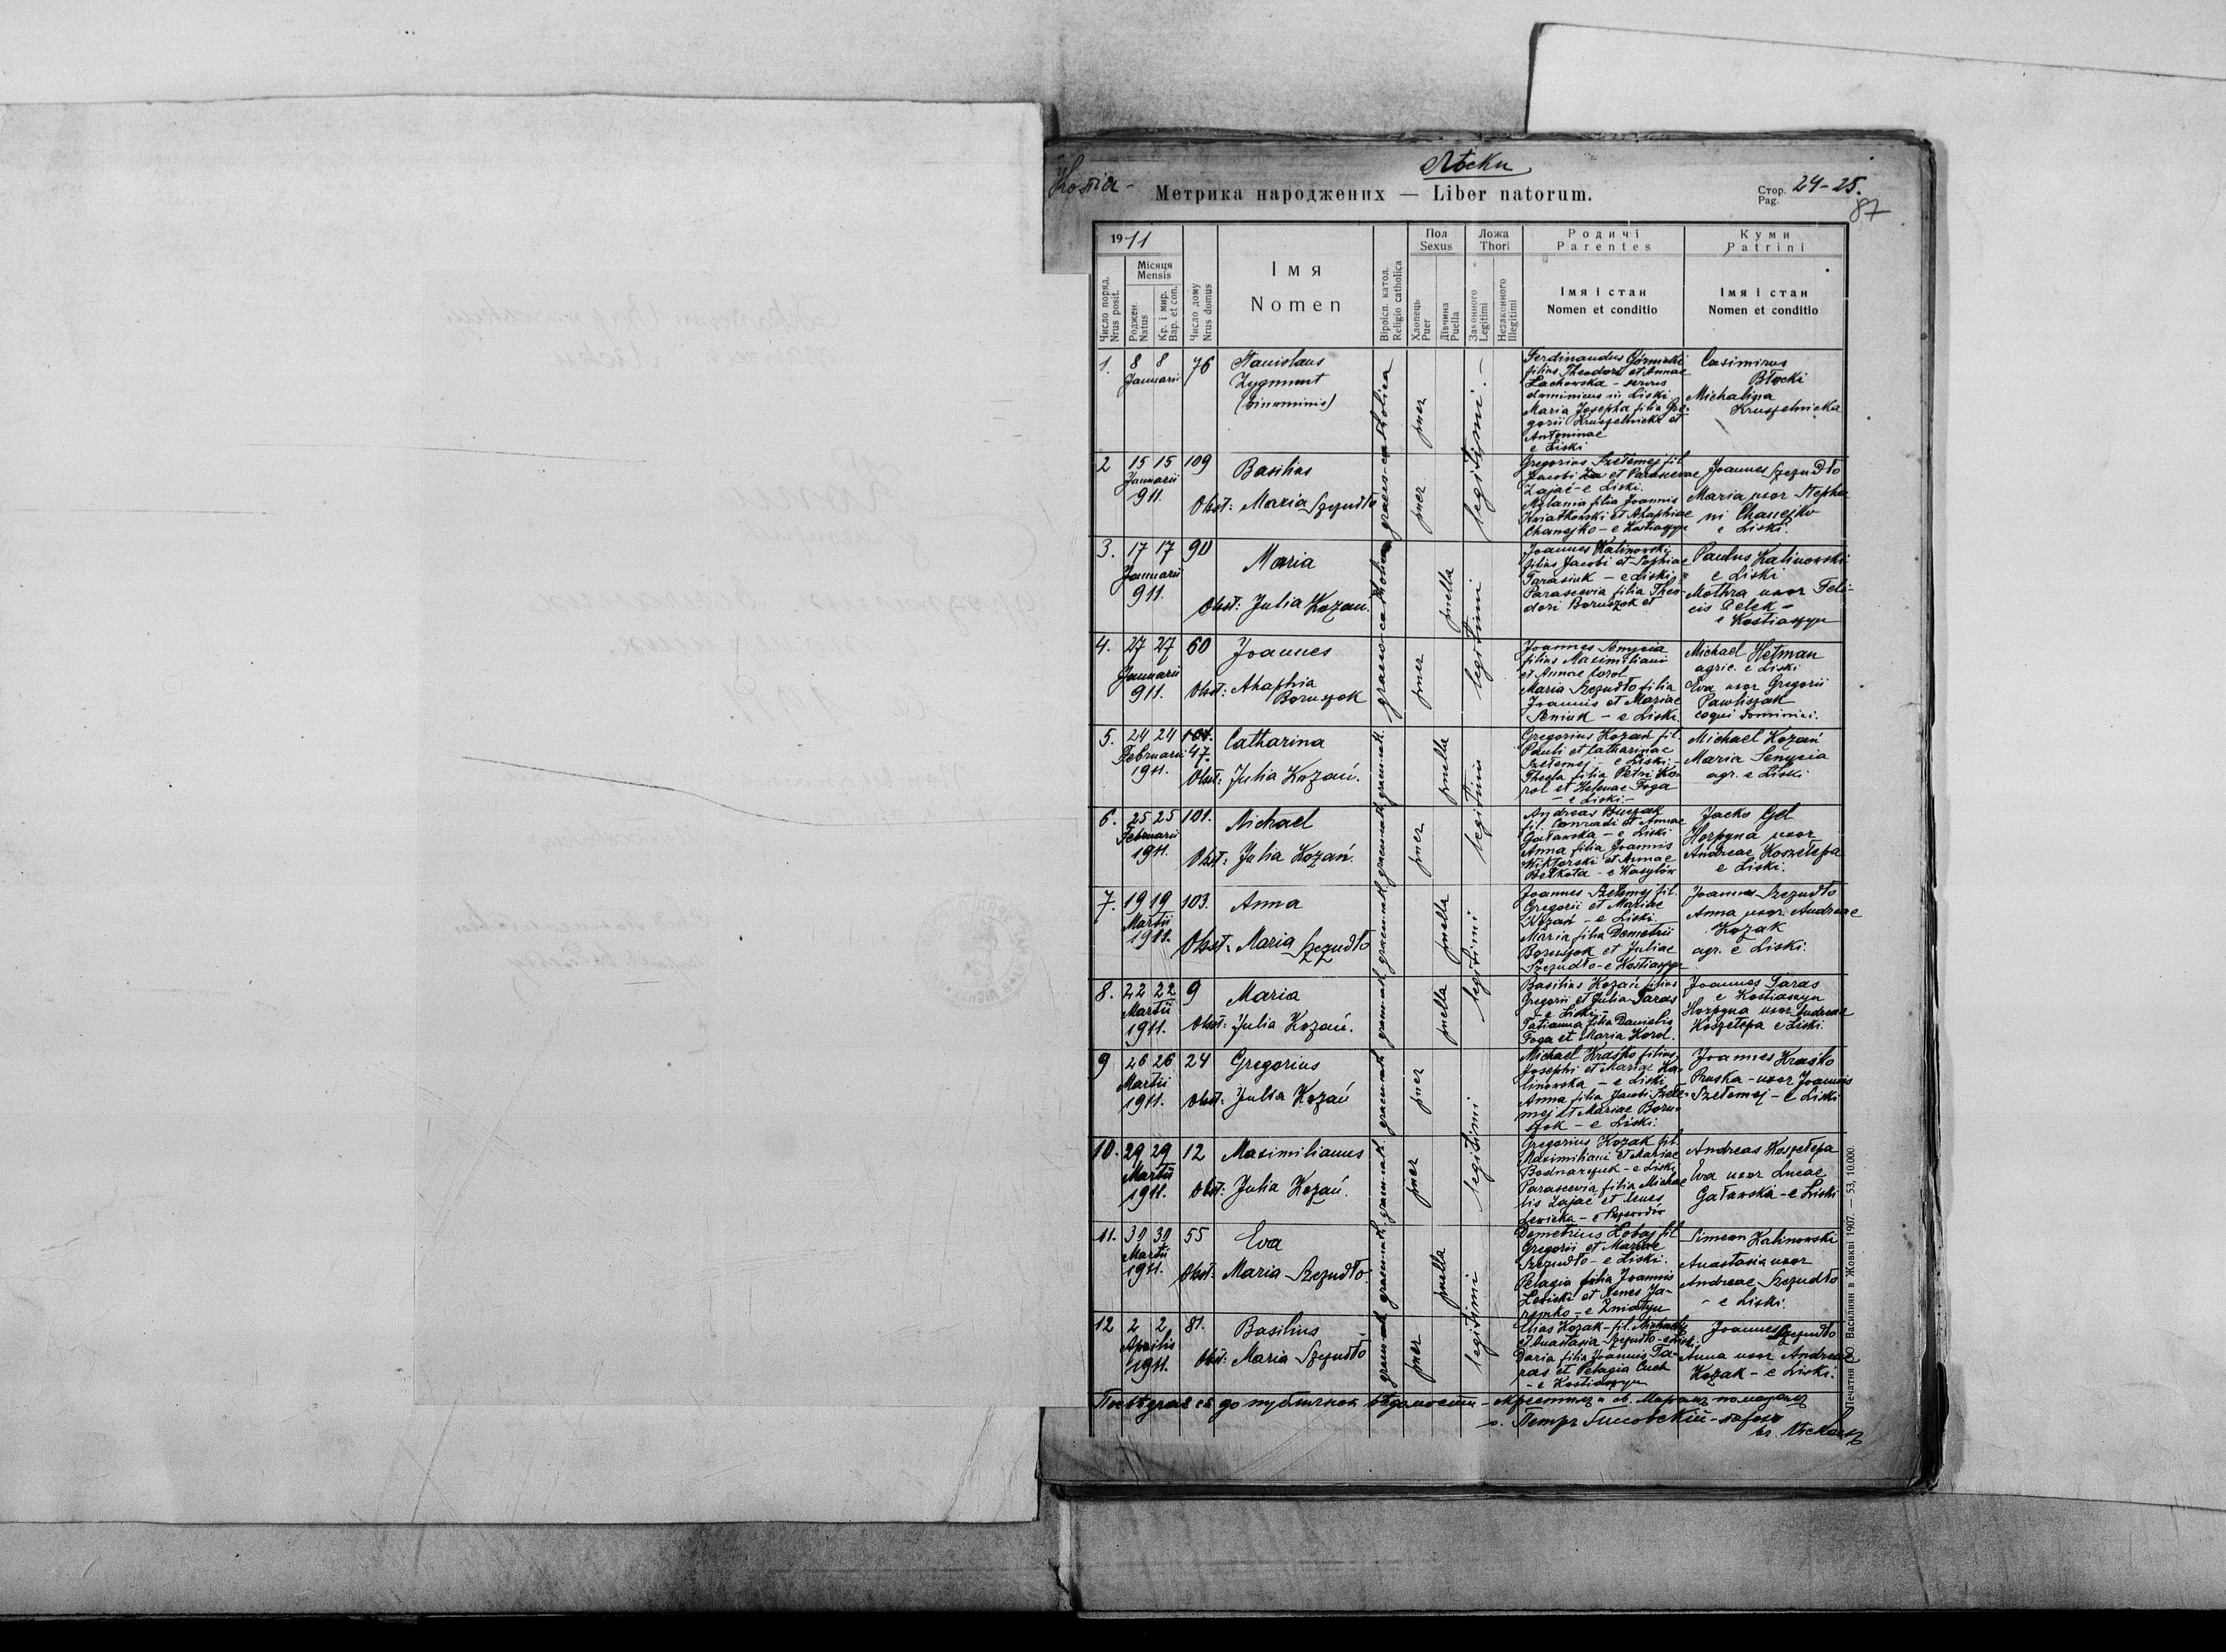 Лѣски
Копія -
Метрика народжених — Liber natorum.
Стор. Pag. 24-25.
87
1911
Число поряд. Nrus posit.
Місяця Mensis
Роджен. Natus
Кр. і мир. Bap. et con.
Число дому Nrus domus
Імя
Nomen
Віроісп. катол. Religio catholica
Пол Sexus
Хлопець Puer
Дївчина Puella
Ложа Thori
Законного Legitimi
Незаконного Illegitimi
Родичі
Parentes
Імя і стан
Nomen et conditio
Куми
Patrini
Імя і стан
Nomen et conditio
1. 8 8 Januarii 76
Stanislaus
Zygmunt
(binominis)
graeco-catholica puer legitimi
Ferdinandus Górnicki
filius Theodori et Annae
Lachowska - servus
dominicus in Liski
Maria Josepha filia Gre-
gorii Kruszelnicki et
Antoninae
e Liski
Casimirus
Błocki
Michalina
Kruszelnicka
2 15 15 Januarii 911. 109
Basilius
Obst: Maria Szczudło
puer
Gregorius Szełemej fil.
Jacobi et Parascevae
Zajac - e Liski.
Melania filia Joannis
Kwiatkowski et Ahaphiae
Chanejko - e Kostiaszyn
Joannes Szczudło
Maria uxor Stepha-
ni Chanejko
e Liski.
3. 17 17 Januarii 911. 90
Maria
Obst: Julia Kozań.
graeco-catholica puella legitimi
Joannes Kalinowski
filius Jacobi et Sophiae
Tarasiuk - e Liski
Parascevia filia Theo-
dori Boruszok et
Paulus Kalinowski
e Liski
Mothra uxor Feli-
cis Pelek -
e Kostiaszyn
4. 27 27 Januarii 911. 60
Joannes
Obst: Ahaphia
Boruszok
puer legitimi
Joannes Senycia
filius Maximiliani
et Annae Korol
Maria Szczudło filia
Joannis et Mariae
Seniuk - e Liski.
Michael Hetman
agric. e Liski
Eva uxor Gregorii
Pawliszak
coqui dominici.
5. 24 24 Februarii 1911. 47.
Catharina
Obst: Julia Kozań.
graeco-cath. puella legitimi
Gregorius Kozań fil.
Pauli et Catharinae
Szełemej - e Liski -
Thecla filia Petri Ko-
rol et Helenae Foga
- e Liski -
Michael Kozań
Maria Senycia
agr. e Liski
6. 25 25 Februarii 1911. 101.
Michael
Obst: Julia Kozań.
puer legitimi
Andreas
fil. Conradi et Annae
Gaławska - e Liski
Anna filia Joannis
Wiktorski et Annae
Bełkota - e Wasylów
Jacko Gel
Horpyna uxor
Andreae Koszełepa
e Liski.
7. 19 19 Martii 1911. 103.
Anna
Obst: Maria Szczudło
puella legitimi
Joannes Szełemej fil.
Gregorii et Mariae
Kozań - e Liski.
Maria filia Demetrii
Boruszok et Juliae
Szczudło - e Kostiaszyn
Joannes Szczudło
Anna uxor Andreae
Kozak
agr. e Liski.
8. 22 22 Martii 1911. 9
Maria
Obst: Julia Kozań.
puella legitimi
Basilius Kozań filius
Gregorii et Julia Taras
- e Liski -
Tatianna filia Danielis
Foga et Maria Korol.
Joannes Taras
e Kostiaszyn
Horpyna uxor Andreae
Koszełepa e Liski.
9 26 26 Martii 1911. 24
Gregorius
Obst: Julia Kozań
puer legitimi
Michael Kraśko filius
Josephi et Mariae Ka-
linowska - e Liski
Anna filia Jacobi Szełe-
mej et Mariae Boru-
szok - e Liski.
Joannes Kraśko
Pruska - uxor Joannis
Szełemej - e Liski
10. 29 29 Martii 1911. 12
Maximilianus
Obst: Julia Kozań.
puer legitimi
Gregorius Kozak fil.
Maximiliani et Mariae
Bodnarczuk - e Liski
Parascevia filia Michae-
lis Zajac et Xenes
Lewicka - e Przewodów
Andreas Koszełepa
Eva uxor Lucae
Gaławska - e Liski
11. 30 30 Martii 1911. 55
Eva
Obst: Maria Szczudło
puella legitimi
Demetrius Łobaj fil.
Gregorii et Mariae
Szczudło - e Liski.
Pelagia filia Joannis
Lewicki et Xenes Ja-
remko - e Żniatyn
Simeon Kalinowski
Anastasia uxor
Andreae Szczudło
- e Liski.
12 2 2 Aprilis 1911. 81.
Basilius
Obst: Maria Szczudło
puer legitimi
Elias Kozak - fil. Michaelis
et Anastasia Szczudło - e Liski.
Daria filia Joannis Ta-
ras et Pelagia Cuch
- e Kostiaszyn
Joannes Szczudło
Anna uxor Andreae
Kozak - e Liski.
до публичной вѣдомости - Крестилъ и св. Мѵромъ помазалъ
о. Петръ
въ Лѣскахъ
Печатня ОО. Василиян в Жовкві 1907. — 53, 10.000.